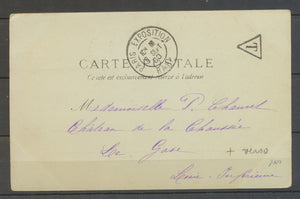 CARTE POSTALE
Ce côté est exclusivement réservé à l'adresse
PARIS EXPOSITION
T
Mademoiselle P. Chauvet
Château de la Chaussée
Le Gâvre
+ verso
Loire Inférieure